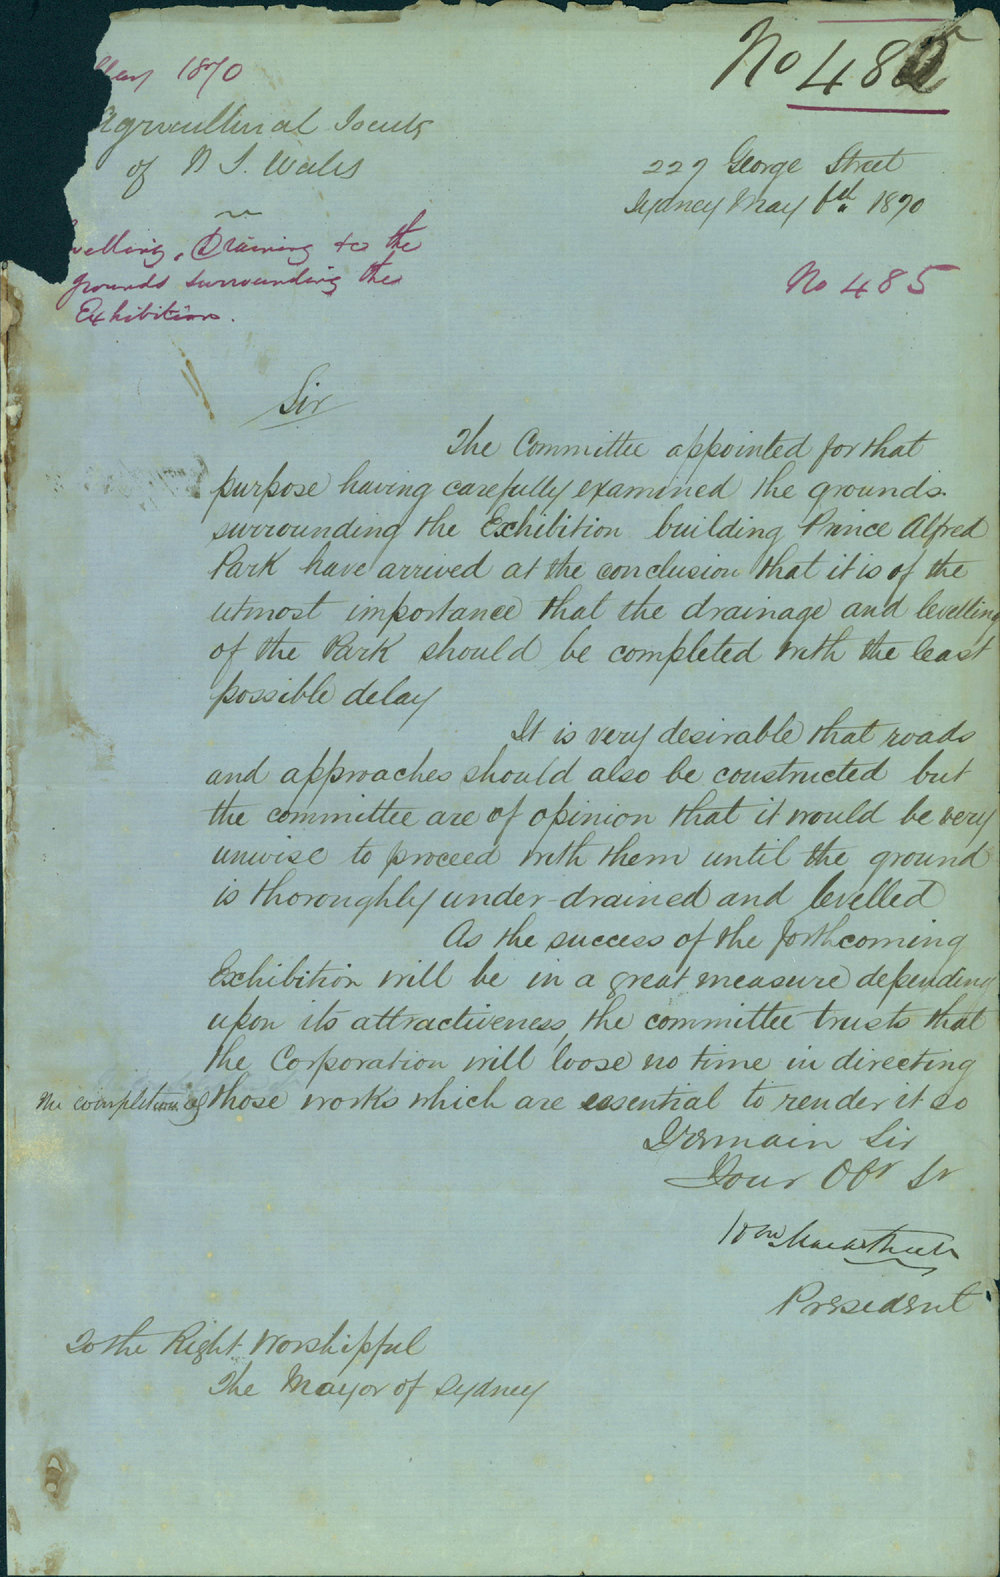 May 1870
No 485
Agricultural Society
of N S. Wales
227 George Street
Sydney May 6th. 1870
velling, Draining to the
grounds surrounding the
Exhibition.
No 485
Sir
The Committee appointed for that
purpose having carefully examined the grounds
surrounding the Exhibition building Prince Alfred
Park have arrived at the conclusion that it is of the
utmost importance that the drainage and levelling
of the Park should be completed with the least
possible delay
It is very desirable that roads
and approaches should also be constructed but
the committee are of opinion that it would be very
unwise to proceed with them until the ground
is thoroughly under-drained and levelled
As the success of the forthcoming
Exhibition will be in a great measure depending
upon its attractiveness, the committee trusts that
the Corporation will loose no time in directing
the completion of those works which are essential to render it so
I remain Sir
Your Obt St
Wm Macarthur
President
To the Right Worshipful
The Mayor of Sydney